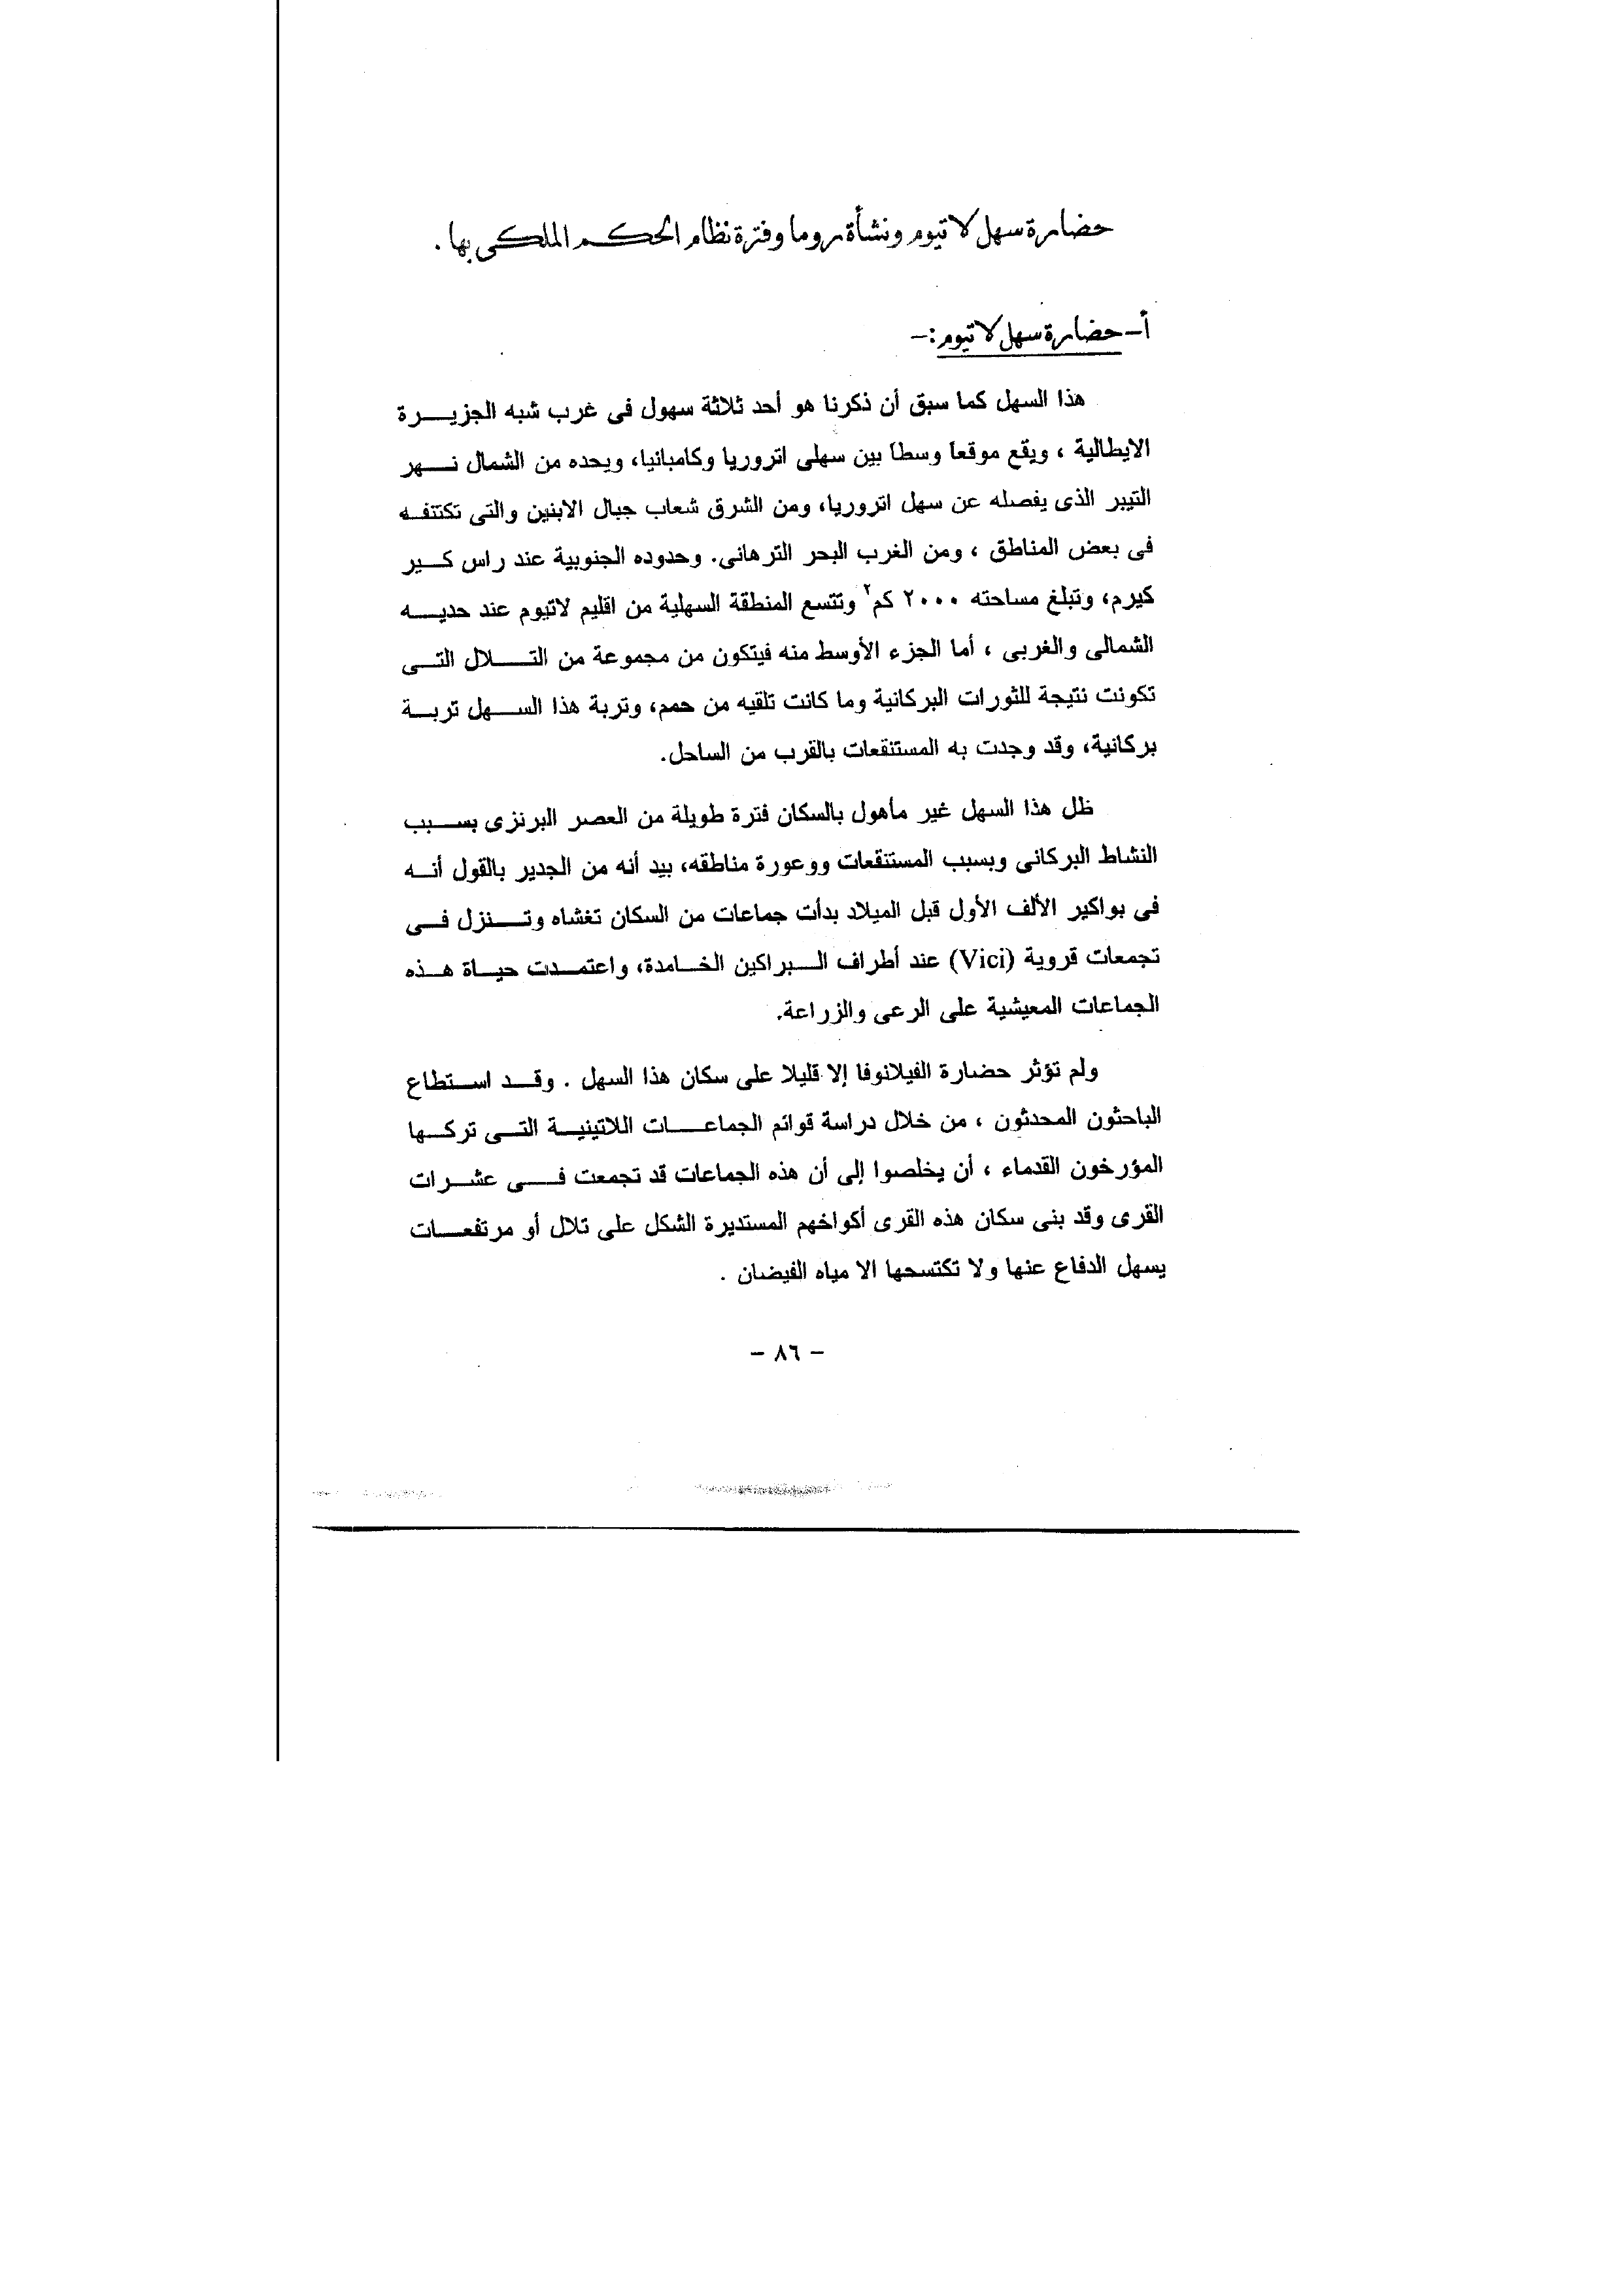 حضارة سهل لاتيوم ونشأة روما وفترة نظام الحكم الملكى بها .
أ- حضارة سهل لاتيوم:-
هذا السهل كما سبق أن ذكرنا هو أحد ثلاثة سهول فى غرب شبه الجزيرة
الايطالية ، ويقع موقعاً وسطاً بين سهلى اتروريا وكامبانيا، ويحده من الشمال نهر
التيبر الذى يفصله عن سهل اتروريا، ومن الشرق شعاب جبال الابنين والتى تكتنفه
فى بعض المناطق ، ومن الغرب البحر الترهانى. وحدوده الجنوبية عند راس كير
كيرم، وتبلغ مساحته ٢٠٠٠ كم٢ وتتسع المنطقة السهلية من اقليم لاتيوم عند حديه
الشمالى والغربى ، أما الجزء الأوسط منه فيتكون من مجموعة من التلال التى
تكونت نتيجة للثورات البركانية وما كانت تلقيه من حمم، وتربة هذا السهل تربة
بركانية، وقد وجدت به المستنقعات بالقرب من الساحل.
ظل هذا السهل غير مأهول بالسكان فترة طويلة من العصر البرنزى بسبب
النشاط البركانى وبسبب المستنقعات ووعورة مناطقه، بيد أنه من الجدير بالقول أنه
فى بواكير الألف الأول قبل الميلاد بدأت جماعات من السكان تغشاه وتنزل فى
تجمعات قروية (Vici) عند أطراف البراكين الخامدة، واعتمدت حياة هذه
الجماعات المعيشية على الرعى والزراعة.
ولم تؤثر حضارة الفيلانوفا إلا قليلا على سكان هذا السهل . وقد استطاع
الباحثون المحدثون ، من خلال دراسة قوائم الجماعات اللاتينية التى تركها
المؤرخون القدماء ، أن يخلصوا إلى أن هذه الجماعات قد تجمعت فى عشرات
القرى وقد بنى سكان هذه القرى أكواخهم المستديرة الشكل على تلال أو مرتفعات
يسهل الدفاع عنها ولا تكتسحها الا مياه الفيضان .
- ٨٦ -